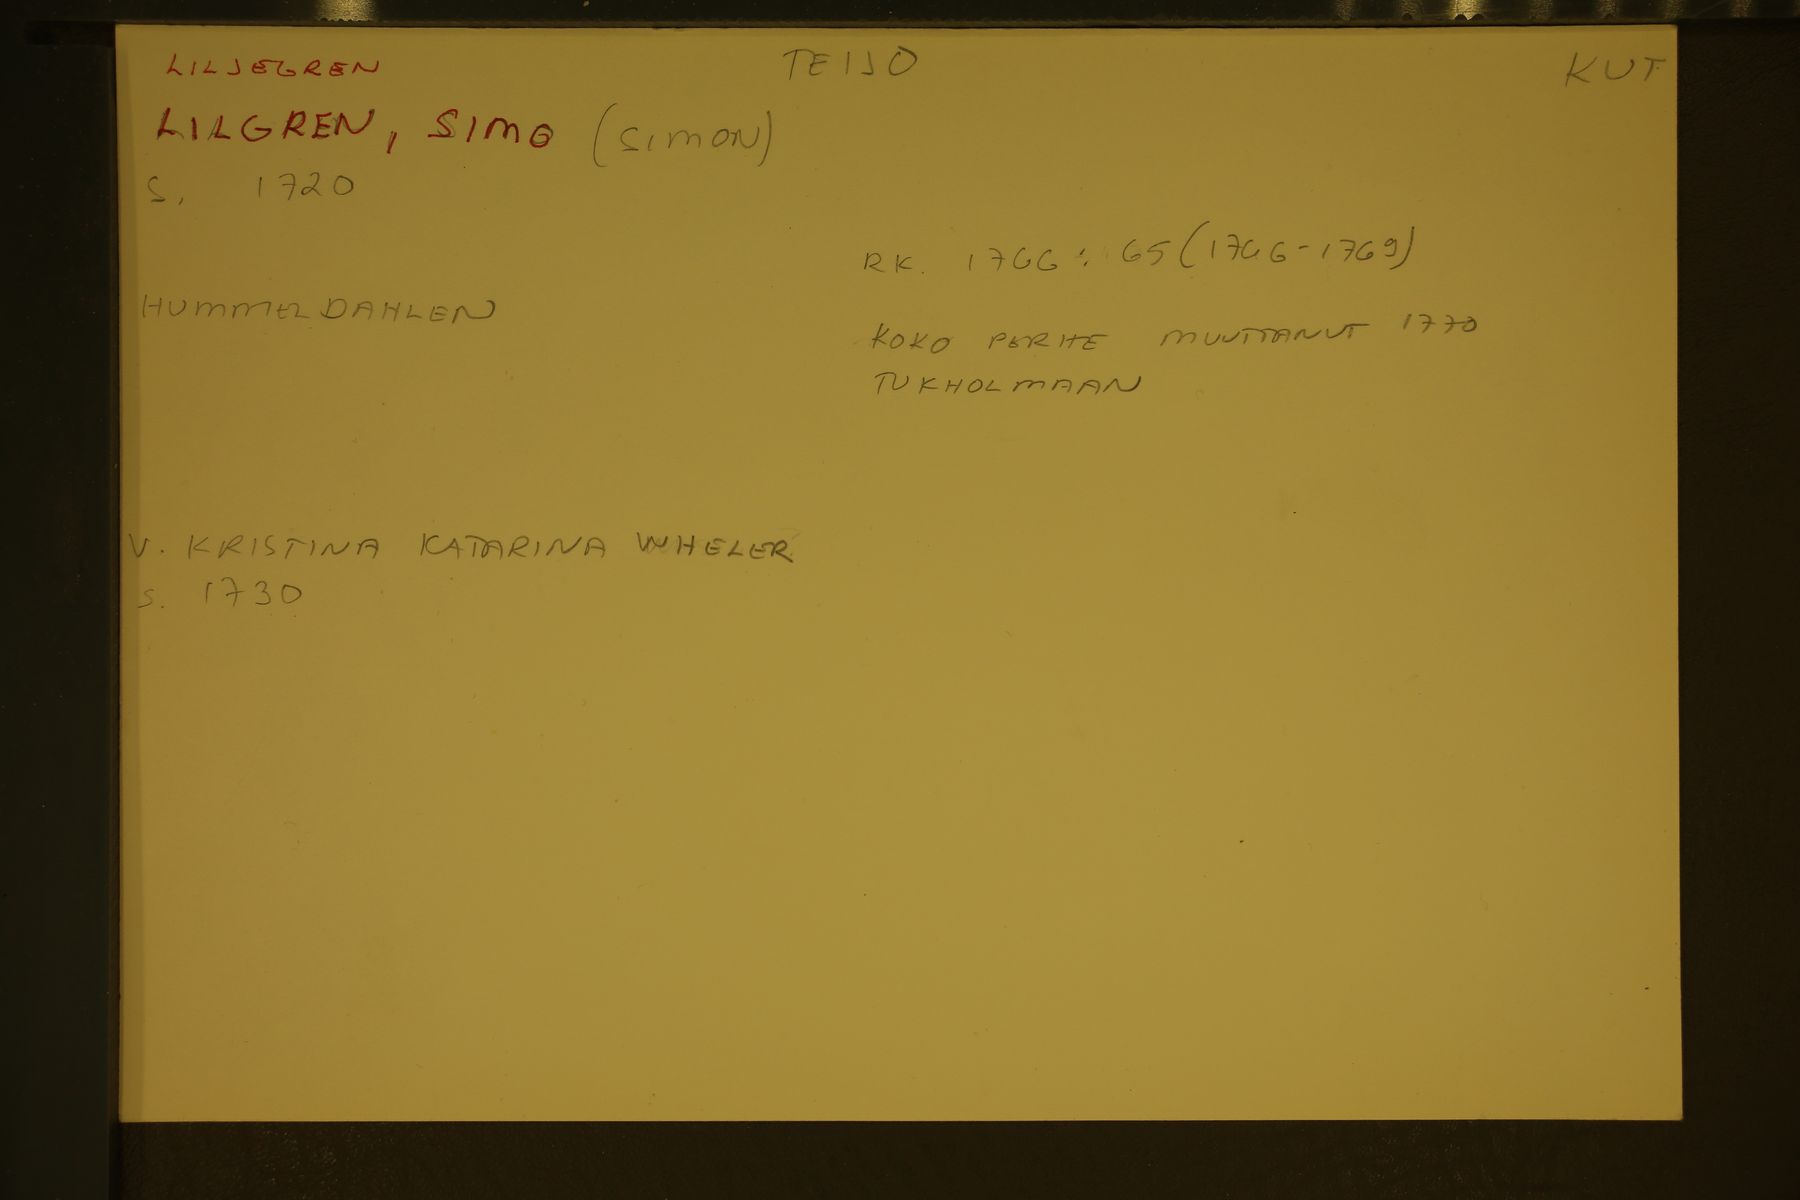 LILJEGREN TEIJO KUT
LILGREN, SIMO (SIMON)
S. 1720
RK. 1766: 65 (1766-1769)
HUMMELDAHLEN
KOKO PERHE MUUTTANUT 1770
TUKHOLMAAN
V. KRISTINA KATARINA WHELER
S. 1730